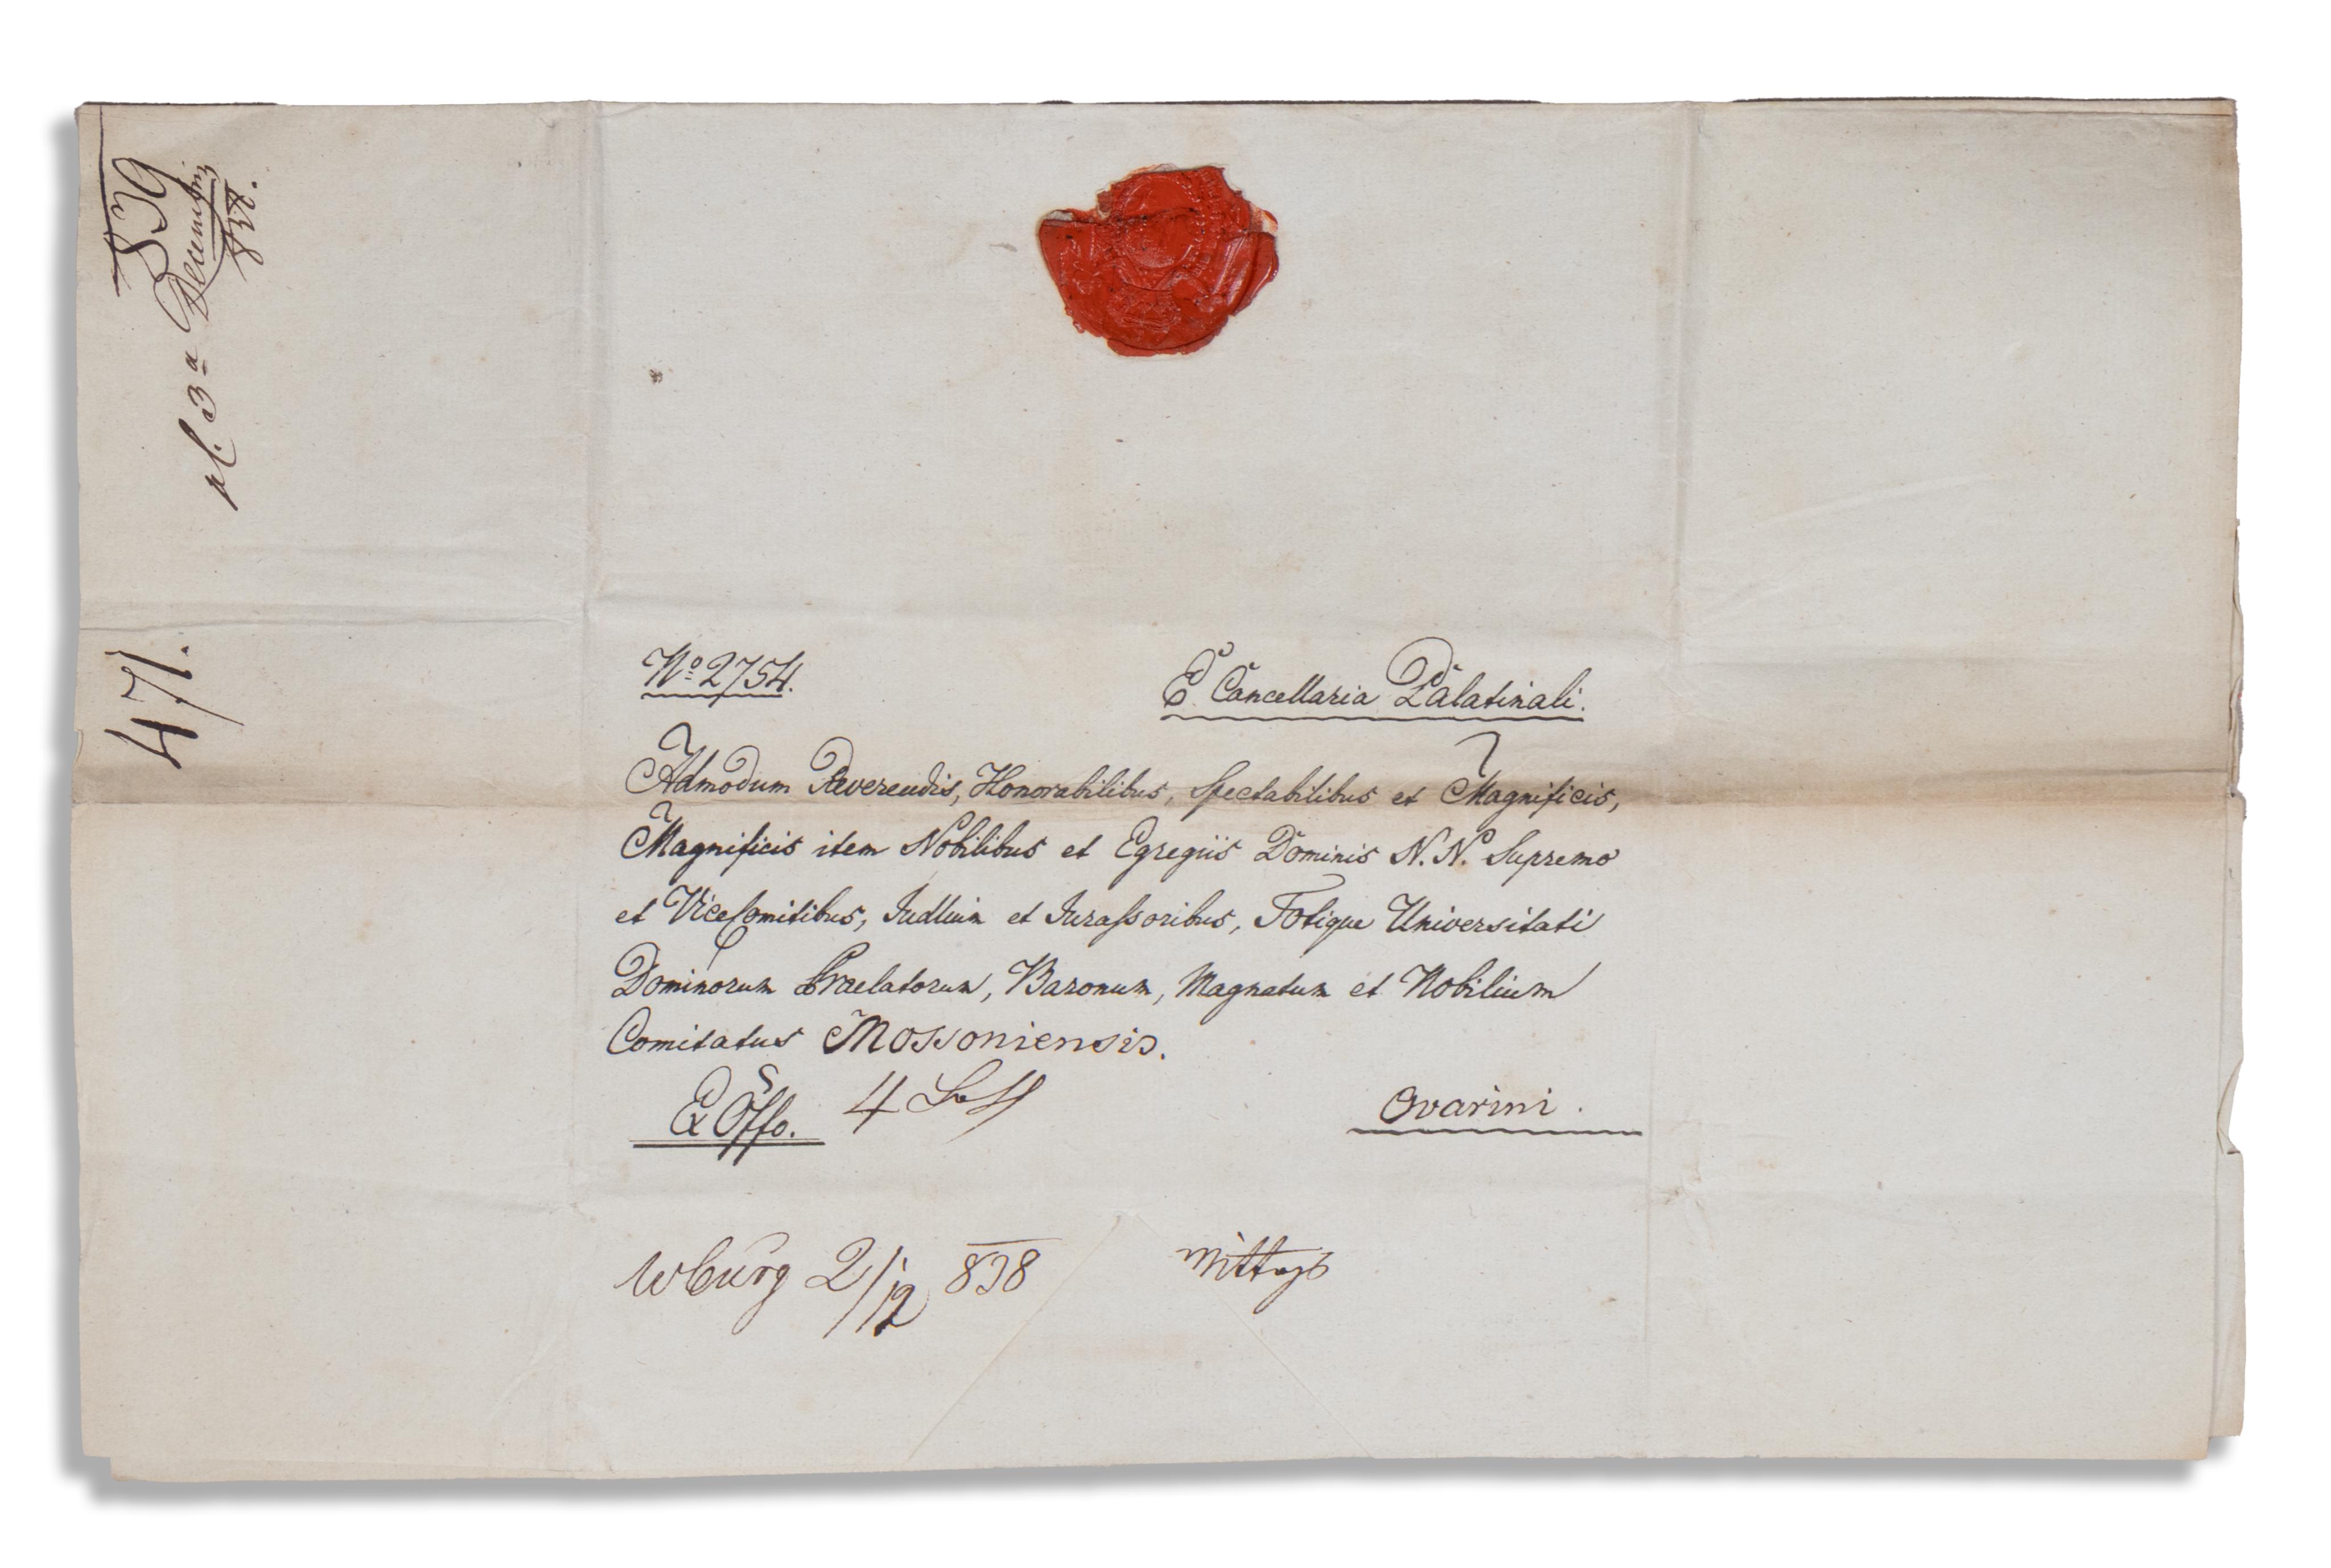 839
pl. 3ª Decembris
838.
471.
Nº 2754.
E Cancellaria Palatinali.
Admodum Reverendis, Honorabilibus, Spectabilibus et Magnificis,
Magnificis item Nobilibus et Egregiis Dominis N. N. Supremo
et ViceComitibus, Judlium et Jurassoribus, Totique Universitati
Dominorum Praelatorum, Baronum, Magnatum et Nobilium
Comitatus Mossoniensis.
Ex Offo. 4
Ovarini.
Wburg 2/12 838
Mittags